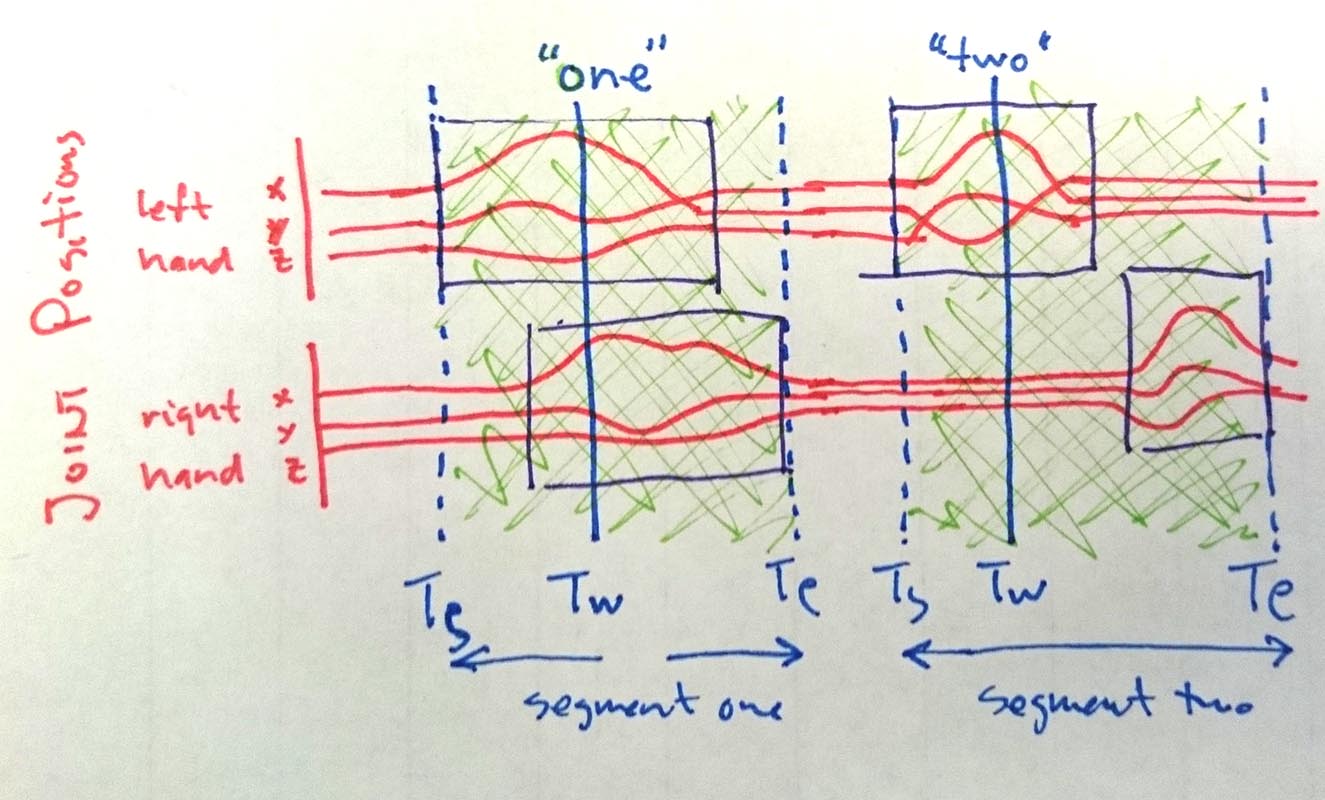 "one"
"two"
Joint Positions
left
hand
x
y
z
right
hand
x
y
z
Ts
Tw
Te
Ts
Tw
Te
segment one
segment two